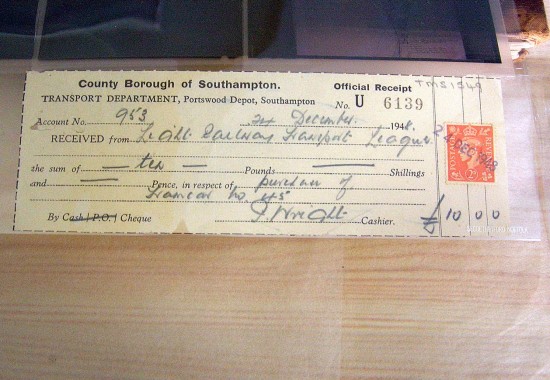 County Borough of Southampton.
Official Receipt
TMS1549
TRANSPORT DEPARTMENT, Portswood Depot, Southampton
No. U 6139
Account No. 953
24 December 1948.
RECEIVED from Light Railway Transport League
the sum of ten Pounds Shillings
and Pence, in respect of purchase of
Tramcar No 45
By Cash / P.O. / Cheque
J Wright Cashier.
£10 0 0
POSTAGE
REVENUE
24 DEC 1948